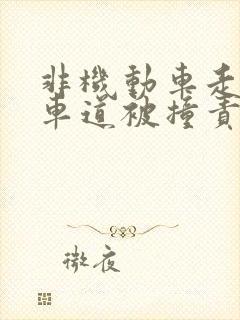 非機動車走
車道被撞責
微夜